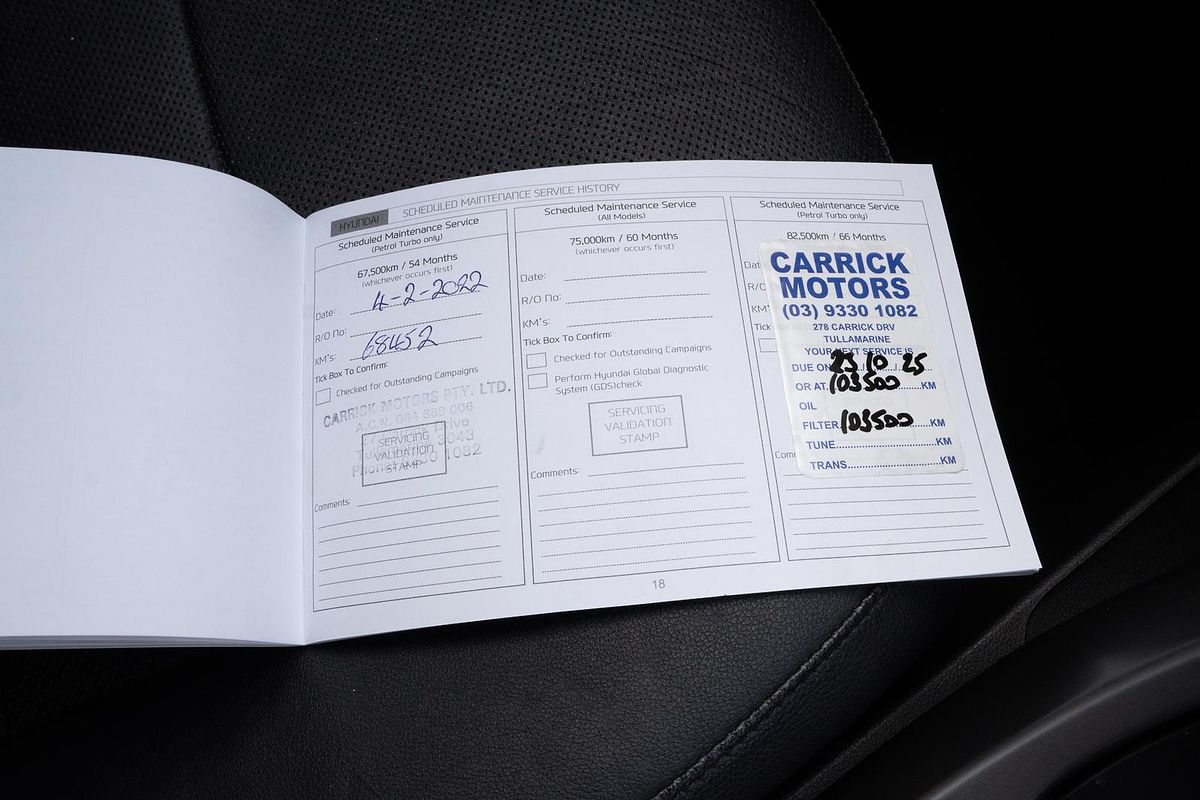 HYUNDAI SCHEDULED MAINTENANCE SERVICE HISTORY
Scheduled Maintenance Service
(Petrol Turbo only)
67,500km / 54 Months
(whichever occurs first)
Date: 4-2-2022
R/O No:
KM's: 68452
Tick Box To Confirm:
Checked for Outstanding Campaigns
CARRICK MOTORS PTY. LTD.
A.C.N. 064 668 006
Drive
3043
1082
SERVICING
VALIDATION
STAMP
Comments:
Scheduled Maintenance Service
(All Models)
75,000km / 60 Months
(whichever occurs first)
Date:
R/O No:
KM's:
Tick Box To Confirm:
Checked for Outstanding Campaigns
Perform Hyundai Global Diagnostic
System (GDS)check
SERVICING
VALIDATION
STAMP
Comments:
18
Scheduled Maintenance Service
(Petrol Turbo only)
82,500km / 66 Months
Dat
R/O
KM'
Tick
Com
CARRICK
MOTORS
(03) 9330 1082
278 CARRICK DRV
TULLAMARINE
YOUR NEXT SERVICE IS
DUE ON 23/10/25
OR AT 103500 KM
OIL
FILTER 103500 KM
TUNE KM
TRANS KM